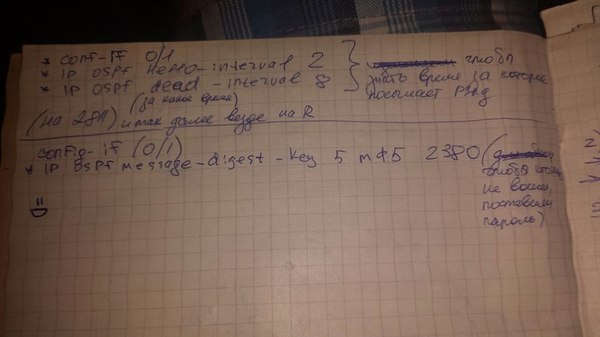 * conf-if 0/1
* IP OSPf Hello-interval 2
* IP OSPf dead-interval 8
чтобы
знать время за которое
посылает
(за какое время)
(на 2811) и так далее везде на R
config-if (0/1)
* IP OSPf message-digest-key 5 md5 2380 (
чтобы
не вошел,
поставили
пароль)
=D